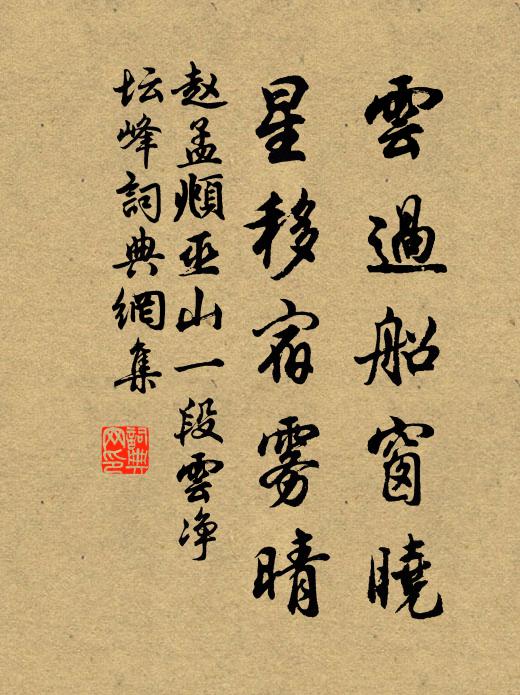 雲過船窗曉
星移宿雾晴
赵孟頫巫山一段雲净
坛峰詞典網集
詞典网印